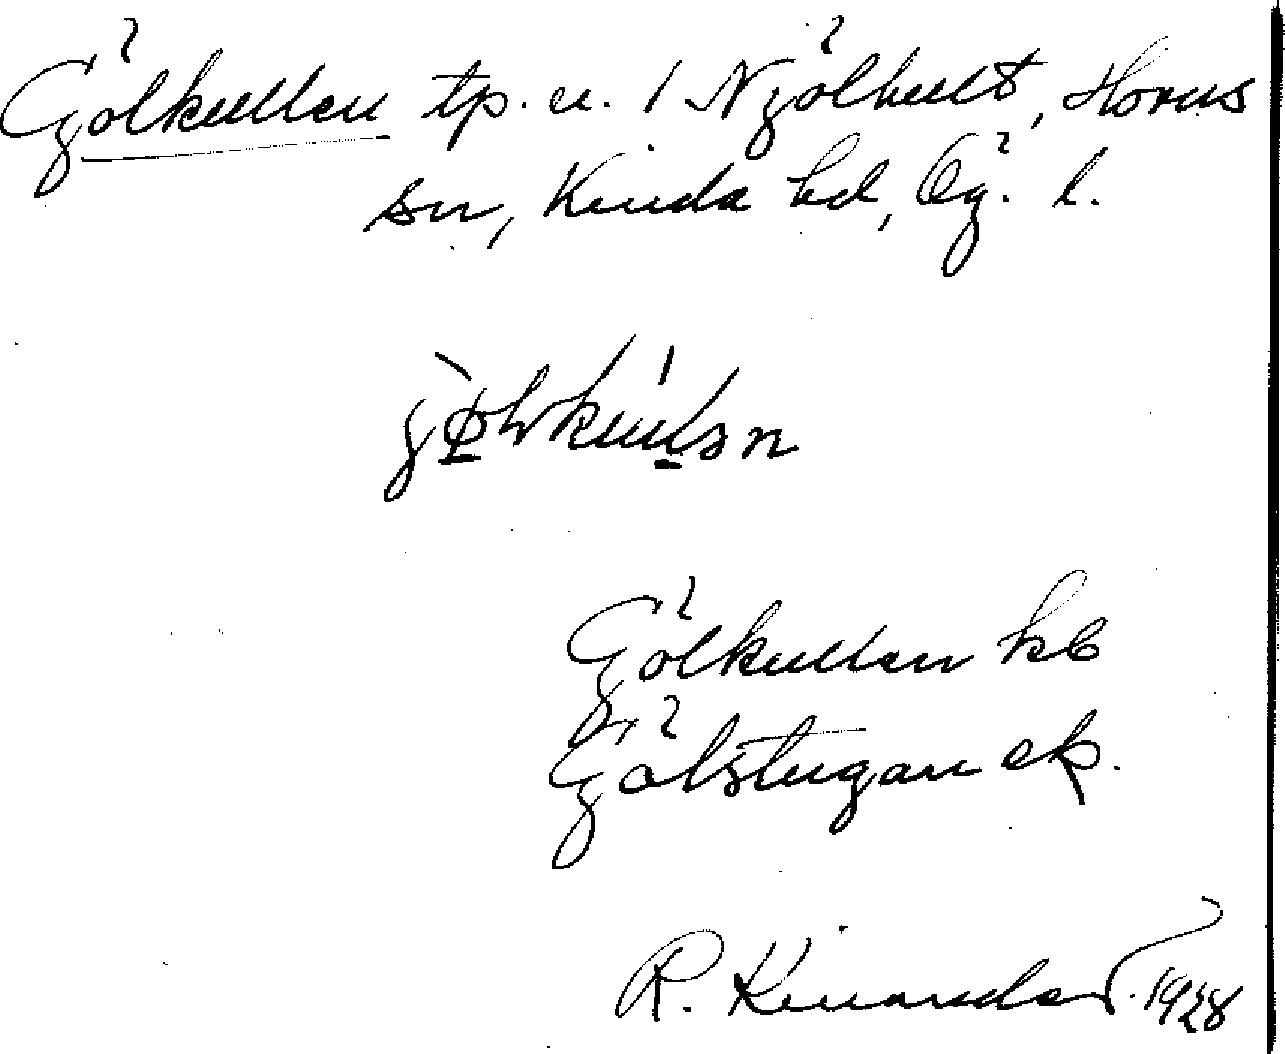 Gölkullen tp. u. 1 N Gölhult, Horns
sn, Kinda hd, Ög. l.
Gölkullen kb
Gölstugan ek.
R. Kinander 1928